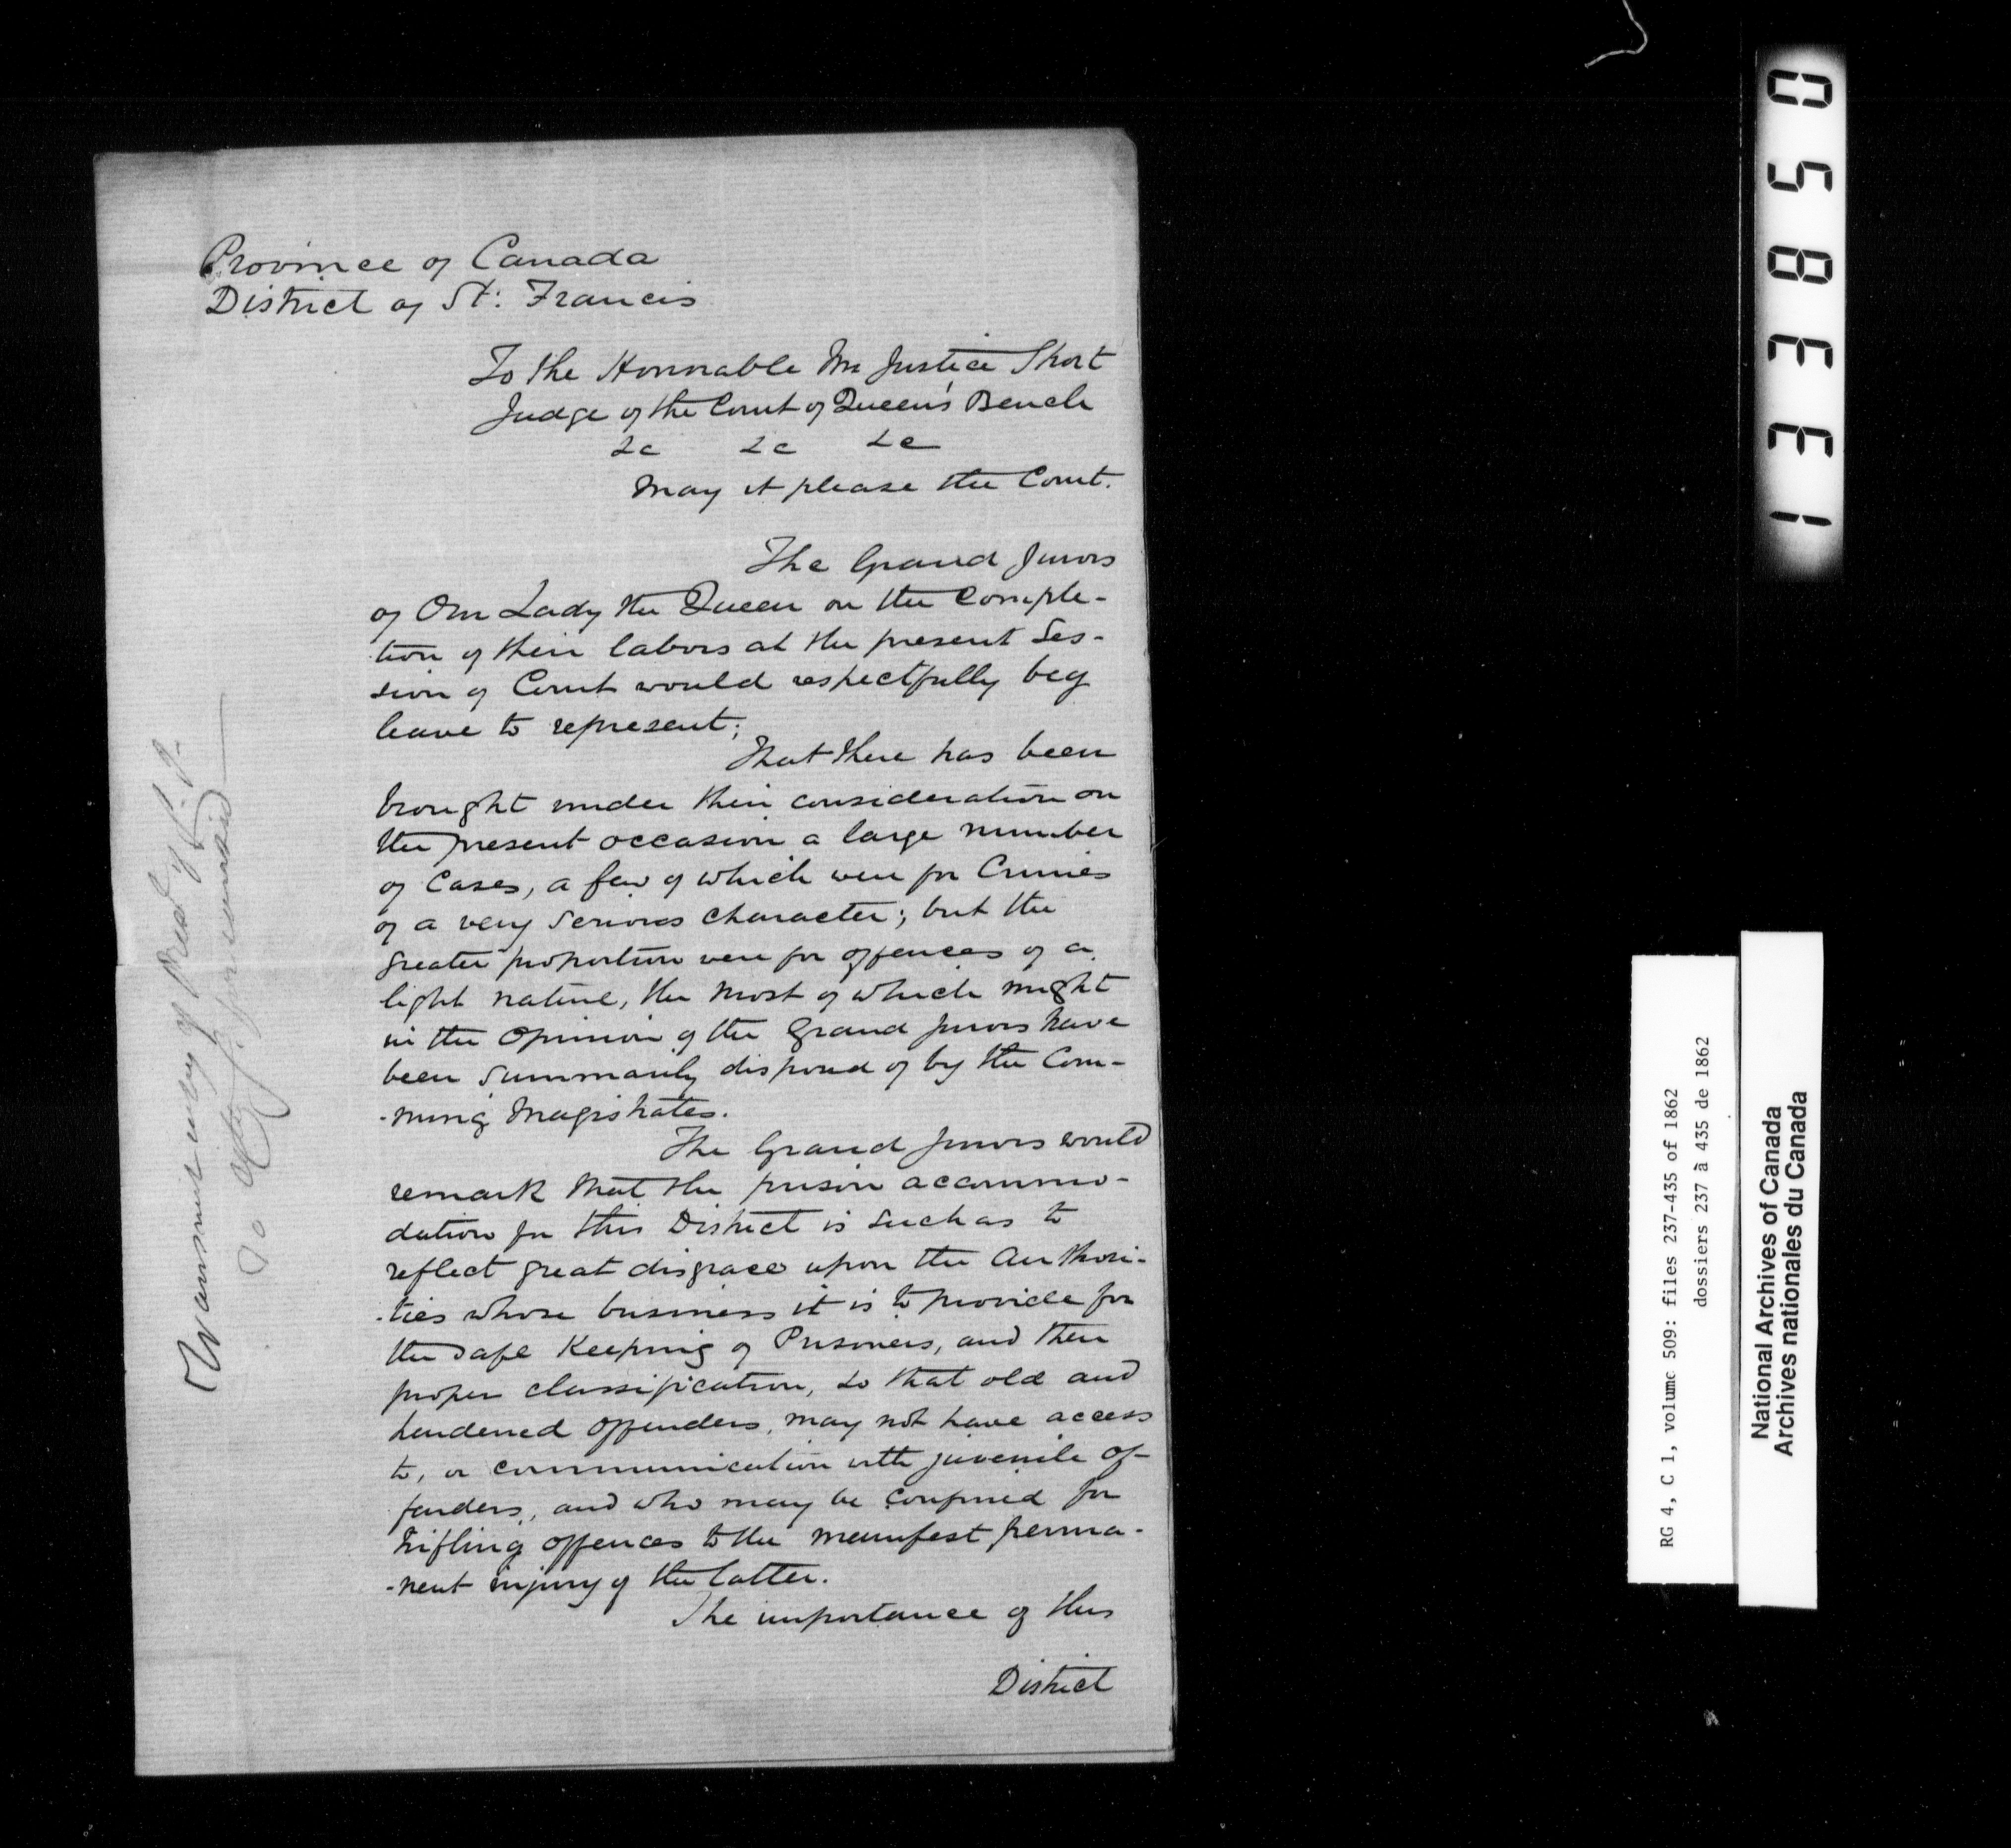 Province of Canada
District of St: Francis
To the Honorable Mr Justice Short
Judge of the Court of Queen's Bench
&c &c &c
May it please the Court.
The Grand Jurors
of Our Lady the Queen on the Comple-
tion of their labors at the present Ses-
sion of Court would respectfully beg
leave to represent;
That there has been
brought under their consideration on
the present occasion a large number
of Cases, a few of which were for Crimes
of a very Serious Character; but the
greater proportion were for offences of a
light nature, the most of which might
in the Opinion of the Grand Jurors have
been Summarily disposed of by the Com-
-miting Magistrates.
The Grand Jurors would
remark that the prison accommo-
dation for this District is such as to
reflect great disgrace upon the Authori-
-ties whose business it is to provide for
the safe Keeping of Prisoners, and their
proper classification, so that old and
hardened Offenders, may not have access
to, or communication with juvenile Of-
fenders, and who may be Confined for
trifling offences to the manifest perma-
-nent injury of the latter.
The importance of this
District
Transmit copy of
To
13385 0
RG 4, C 1, volume 509: files 237-435 of 1862
dossiers 237 à 435 de 1862
National Archives of Canada
Archives nationales du Canada